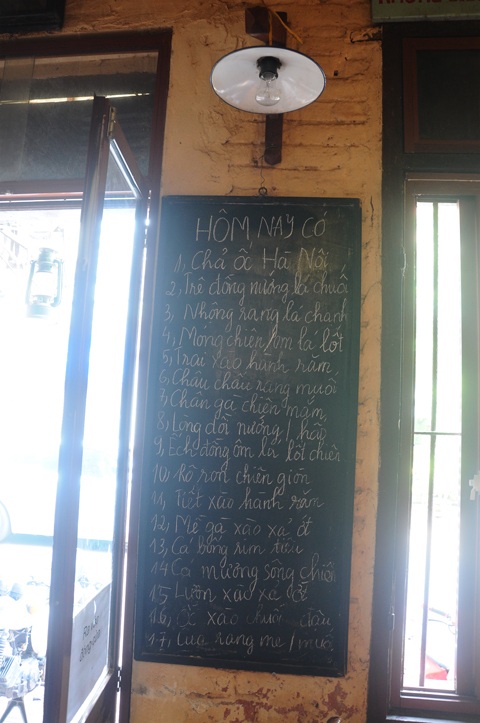 HÔM NAY CÓ
1, Chả ốc Hà Nội
2, Trê đồng nướng lá chuối
3, Nhộng rang lá chanh
4, Móng chiên/om lá lốt
5, Trai xào hành răm
6, Châu chấu rang muối
7, Chân gà chiên mắm
8, Lòng dồi nướng / hấp
9, Ếch đồng ôm lá lốt chiên
10, Rô ron chiên giòn
11, Tiết xào hành răm
12, Mề gà xào xả ớt
13, Cá bống rim tiêu
14 Cá mương sông chiên
15 Lươn xào xả ớt
16, Ốc xào chuối đậu
17, Cua rang me / muối